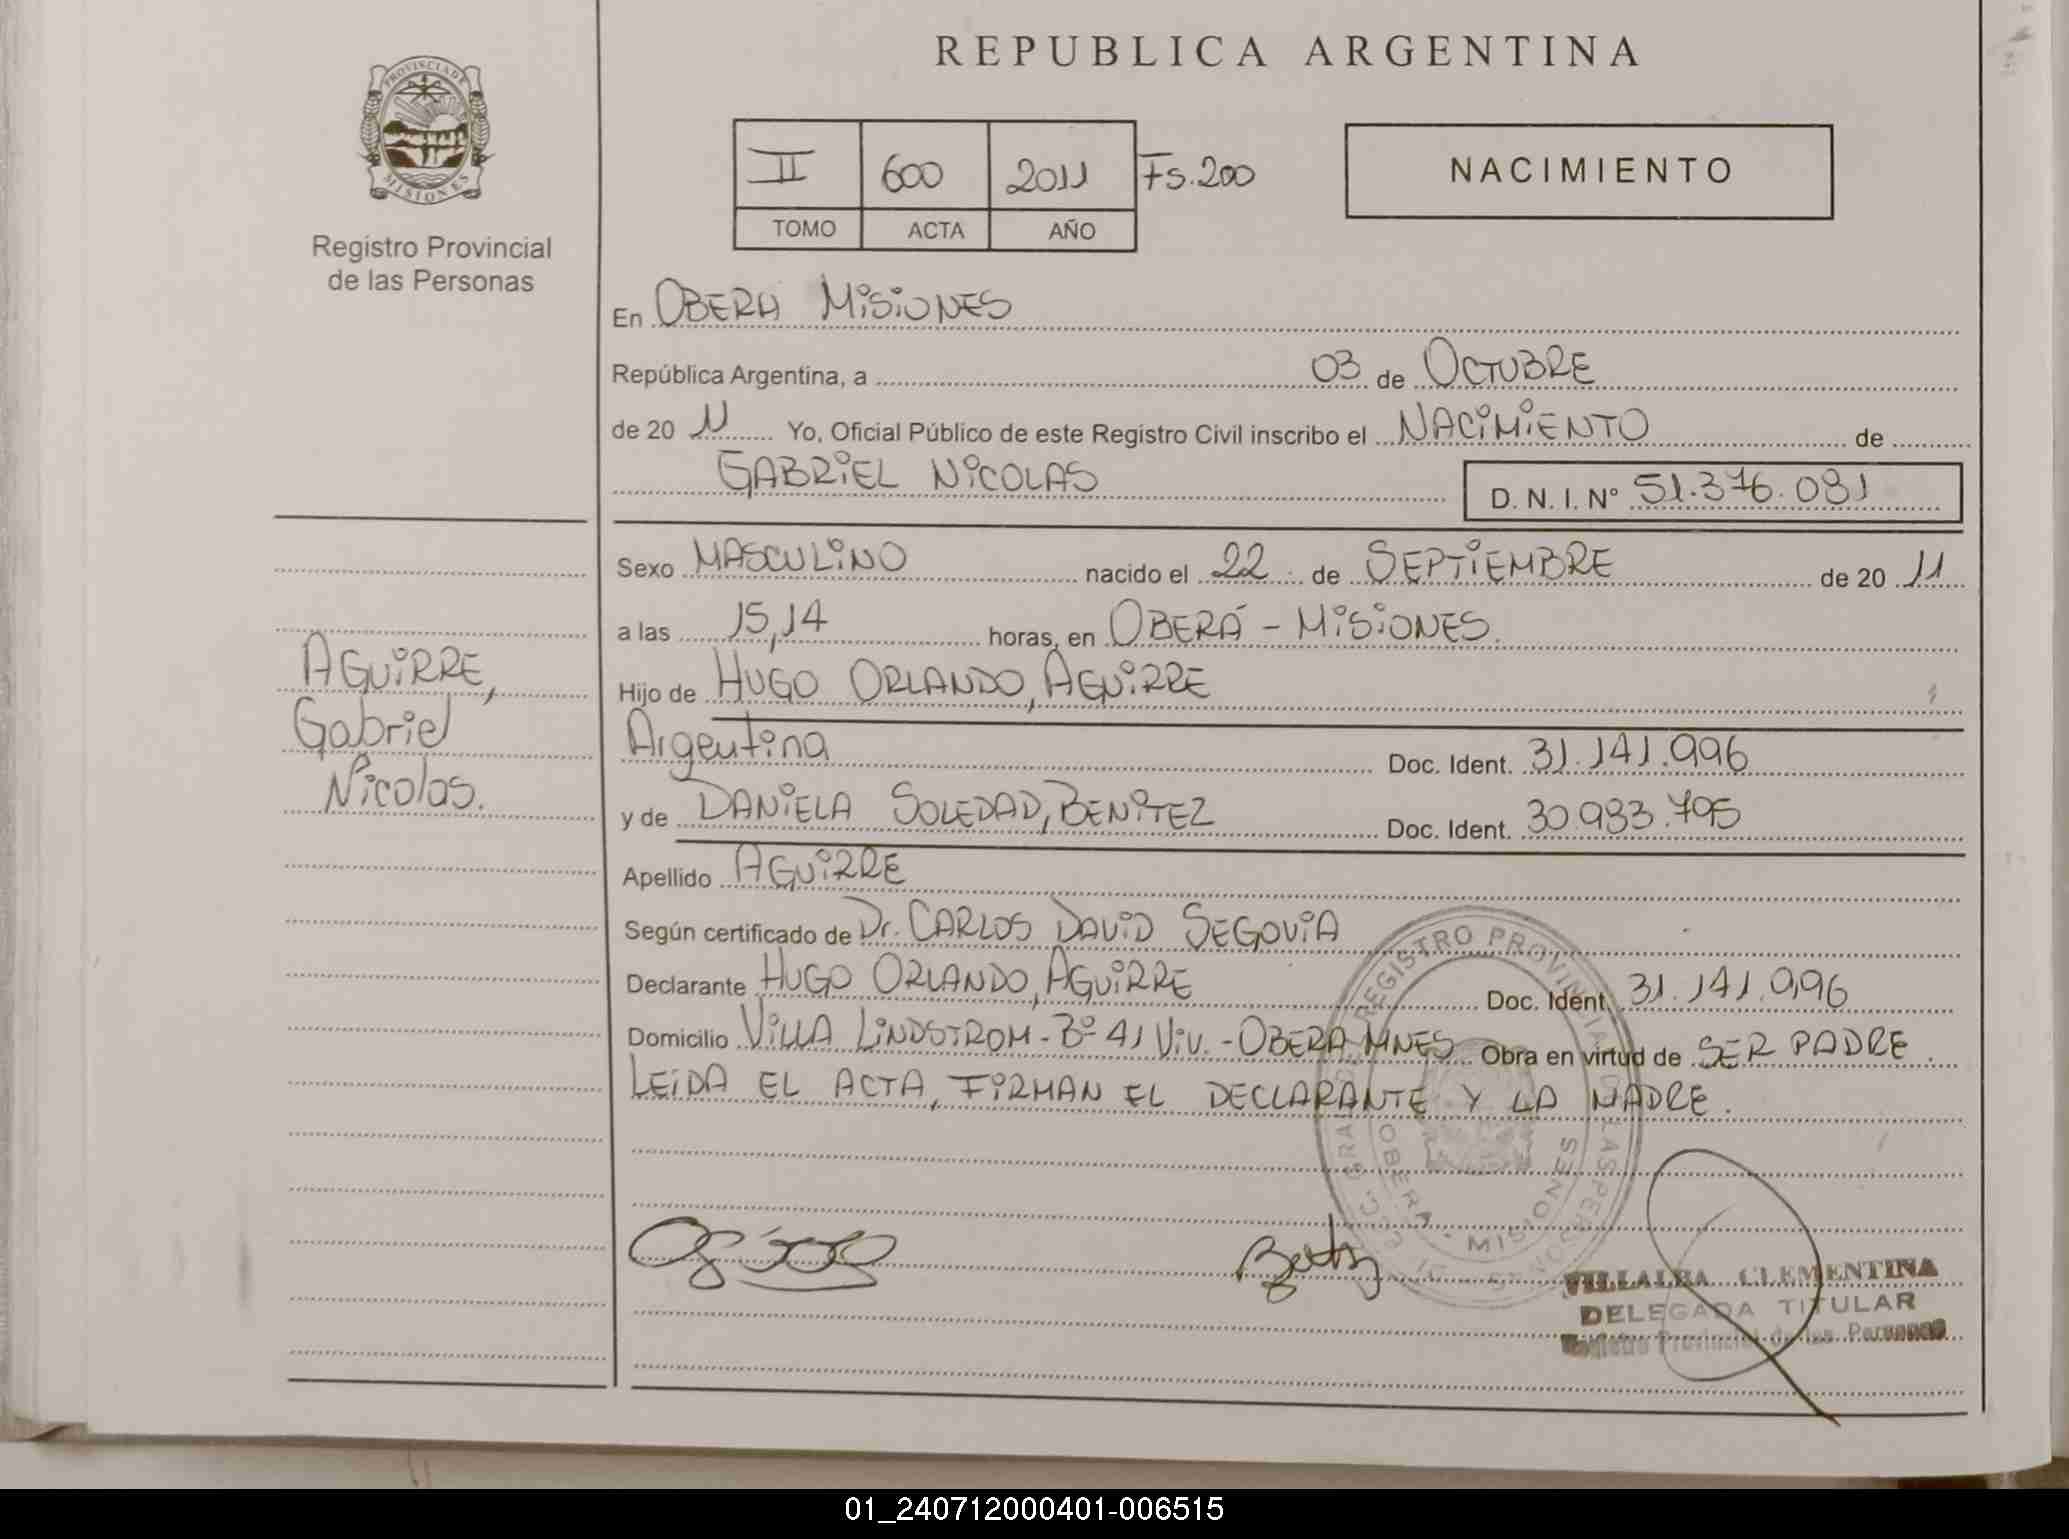 REPUBLICA ARGENTINA
PROVINCIA DE
MISIONES
Registro Provincial
de las Personas
II 600 2011 Fs.200
TOMO ACTA AÑO
NACIMIENTO
En OBERA MISIONES
República Argentina, a 03 de OCTUBRE
de 20 11 Yo, Oficial Público de este Registro Civil inscribo el NACIMIENTO de
GABRIEL NICOLAS D. N. I. Nº 51.376.081
Sexo MASCULINO nacido el 22 de SEPTIEMBRE de 20 11
a las 15,14 horas, en OBERÁ - MISIONES.
Hijo de HUGO ORLANDO, AGUIRRE
Argentina Doc. Ident. 31.141.996
y de DANIELA SOLEDAD, BENITEZ Doc. Ident. 30.983.795
Apellido AGUIRRE
Según certificado de Dr. CARLOS DAVID SEGOVIA
Declarante HUGO ORLANDO, AGUIRRE Doc. Ident. 31.141.996
Domicilio VILLA LINDSTROM - Bº 41 VIV. - OBERA MNES Obra en virtud de SER PADRE.
LEIDA EL ACTA, FIRMAN EL DECLARANTE Y LA MADRE.
AGUIRRE,
Gabriel
Nicolas.
REGISTRO PROVINCIAL DE LAS PERSONAS
OBERA - MISIONES
VILLALBA CLEMENTINA
DELEGADA TITULAR
Registro Provincial de las Personas
01_240712000401-006515